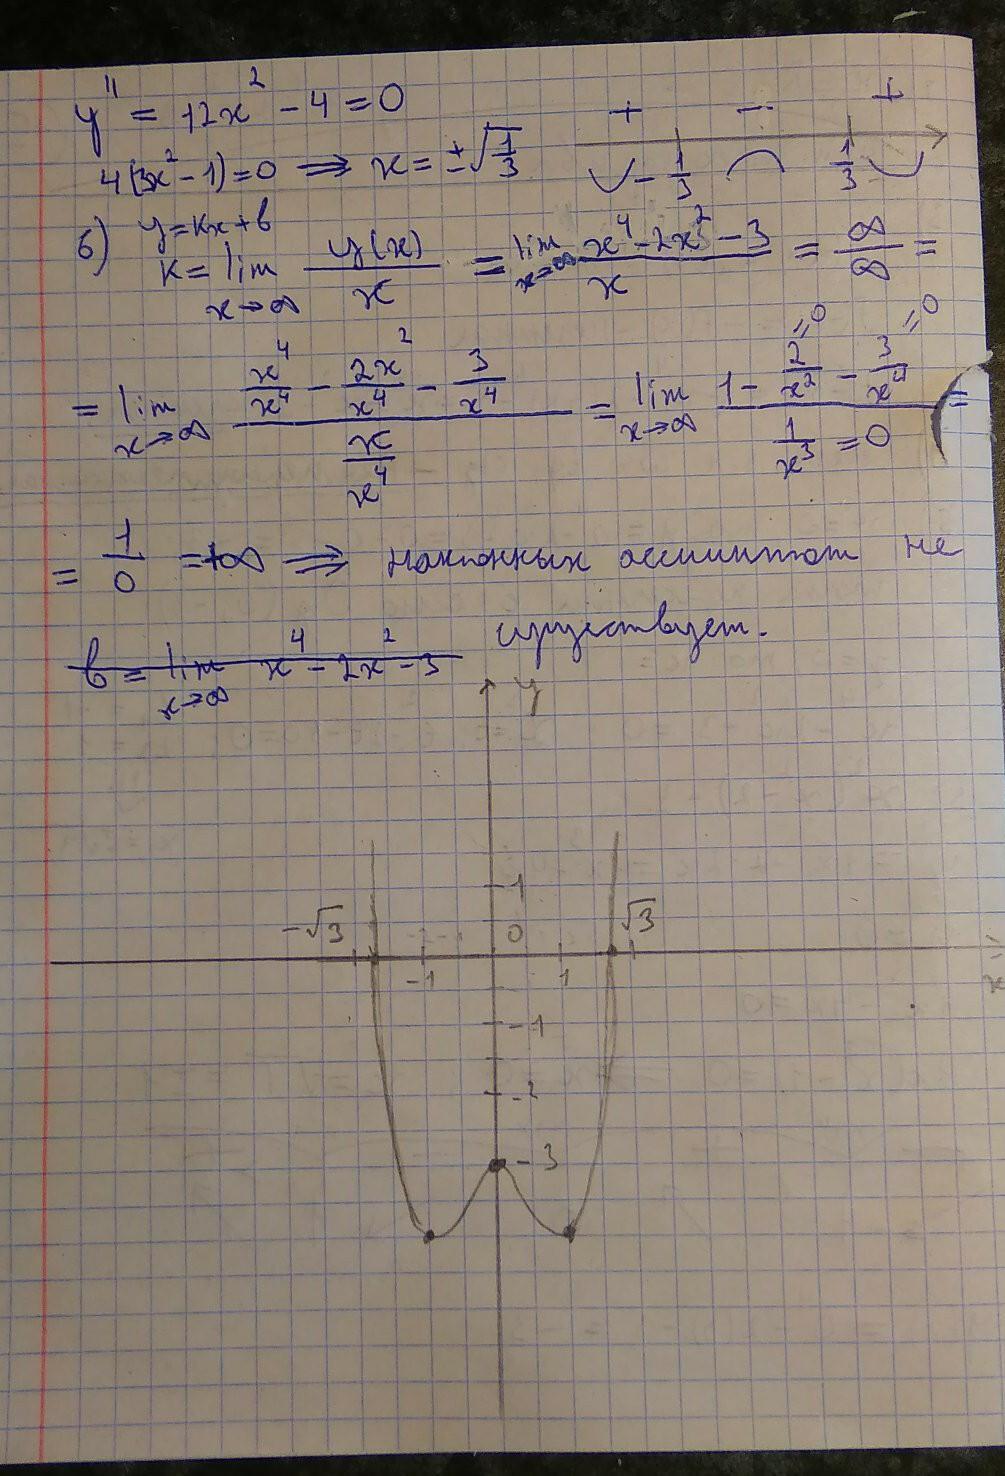 y'' = 12x² - 4 = 0
4(3x² - 1) = 0 ⟹ x = ±√(1/3)
+ - +
-1/3 1/3
б) y = kx + b
k = lim x→∞ y(x)/x = lim x→∞ (x⁴ - 2x² - 3)/x = ∞/∞ =
= lim x→∞ (x⁴/x⁴ - 2x²/x⁴ - 3/x⁴)/(x/x⁴) = lim x→∞ (1 - 2/x² =0 - 3/x⁴ =0)/(1/x³ = 0) =
= 1/0 = +∞ ⟹ наклонных ассимптот не
существует.
b = lim x→∞ x⁴ - 2x² - 3
y
1
-√3 0 √3
-1 1
x
-1
-2
-3